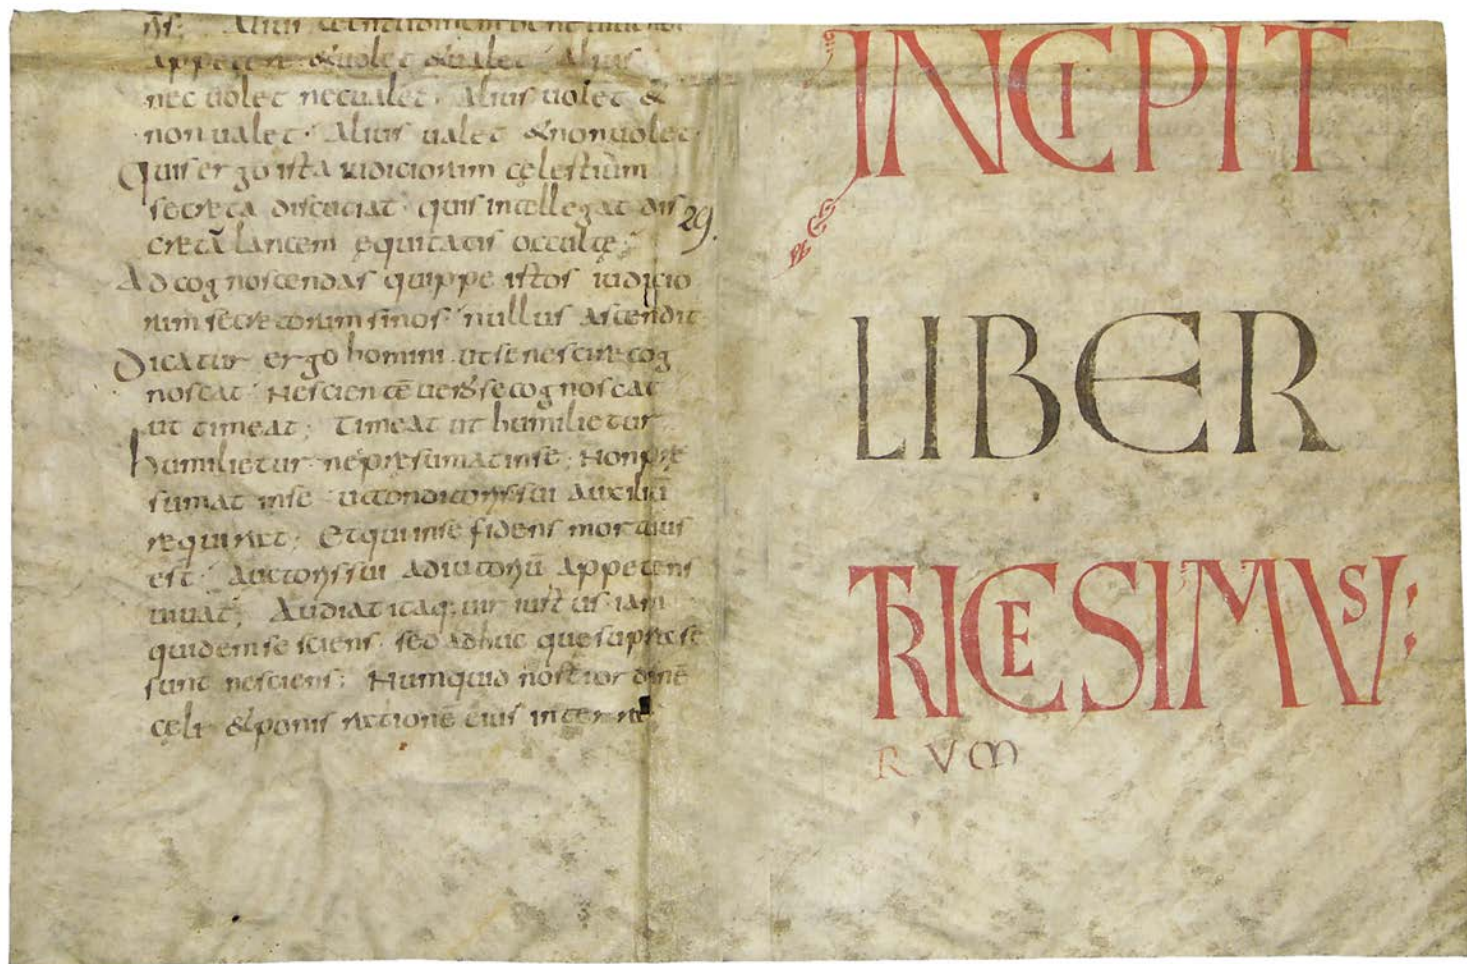 appetere & uolet & ualet · Alius
nec uolet nec ualet · Alius uolet &
non ualet · Alius ualet & non uolet ·
Quis ergo ista iudiciorum cęlestium
secreta discutiat · quis intellegat dis
cretā lancem ęquitatis occultę ;
Ad cognoscendas quippe istos iudicio
rum secretorum sinos · nullus ascendit
Dicatur ergo homini · ut se nescire cog
noscat · Nescientē uero se cognoscat
ut timeat ; Timeat ut humilietur
humilietur · ne pręsumat in se ; Non prę
sumat in se · ut conditoris sui auxiliū
requirat ; Et qui in se fidens mortuus
est · auctoris sui adiutoriū appetens
uiuat ; Audiat itaq; uir iustus · iam
quidem se sciens · sed adhuc que supra se
sunt nesciens ; Numquid nosti ordinē
cęli · & ponis rationē eius in terra ;
29.
INCIPIT
LIBER
TRICESIMUS ;
RUM